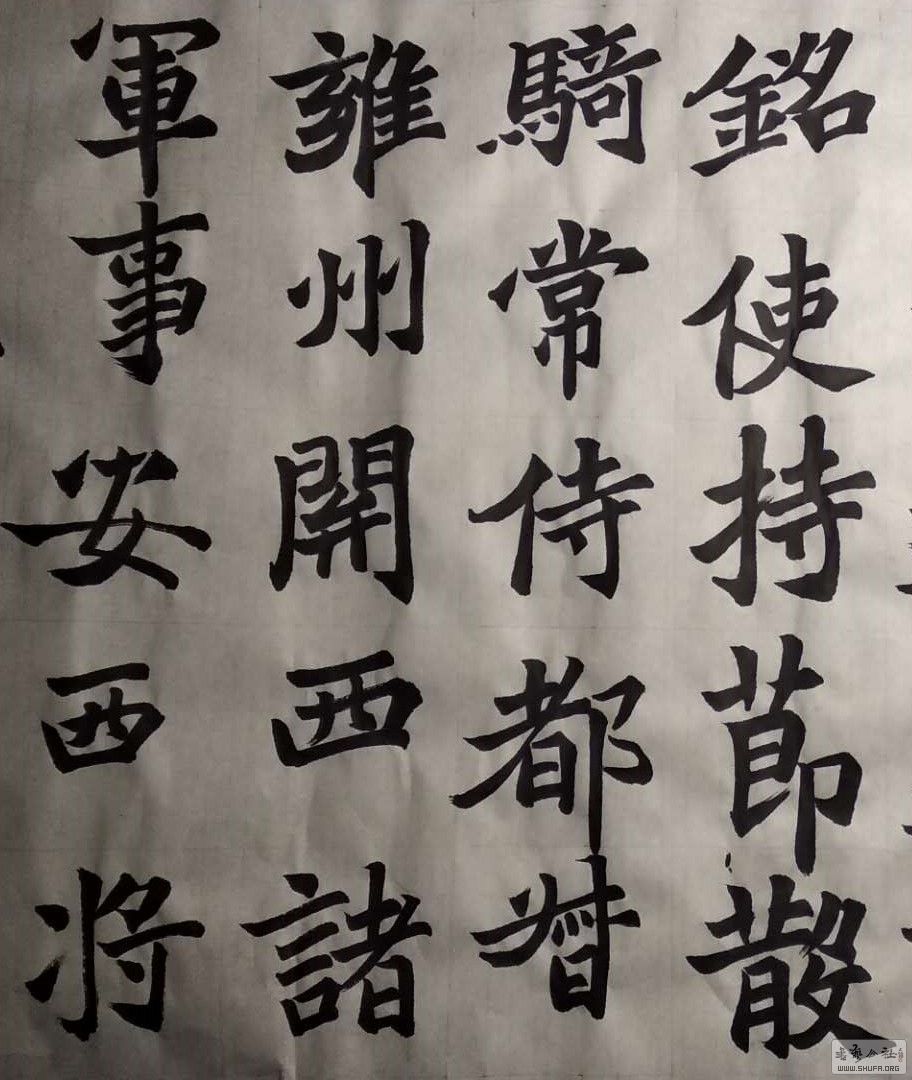 銘使持莭散
騎常侍都督
雍州開西諸
軍事安西将
書藝公社
WWW.SHUFA.ORG